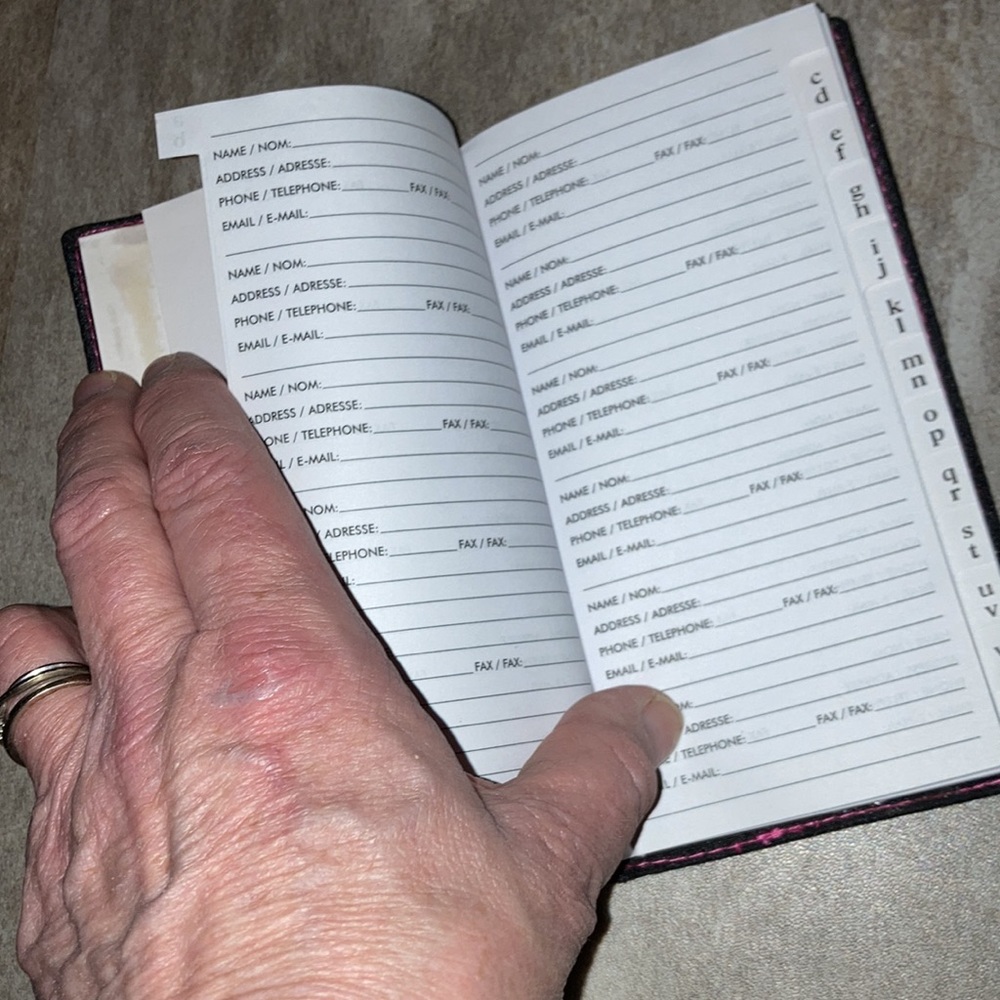 NAME / NOM:
ADDRESS / ADRESSE:
PHONE / TELEPHONE: FAX / FAX:
EMAIL / E-MAIL:
NAME / NOM:
ADDRESS / ADRESSE:
PHONE / TELEPHONE: FAX / FAX:
EMAIL / E-MAIL:
NAME / NOM:
ADDRESS / ADRESSE:
ONE / TELEPHONE: FAX / FAX:
L / E-MAIL:
NOM:
/ ADRESSE:
LEPHONE: FAX / FAX:
IL:
FAX / FAX:
NAME / NOM:
ADDRESS / ADRESSE:
PHONE / TELEPHONE: FAX / FAX:
EMAIL / E-MAIL:
NAME / NOM:
ADDRESS / ADRESSE:
PHONE / TELEPHONE: FAX / FAX:
EMAIL / E-MAIL:
NAME / NOM:
ADDRESS / ADRESSE:
PHONE / TELEPHONE: FAX / FAX:
EMAIL / E-MAIL:
NAME / NOM:
ADDRESS / ADRESSE:
PHONE / TELEPHONE: FAX / FAX:
EMAIL / E-MAIL:
NAME / NOM:
ADDRESS / ADRESSE:
PHONE / TELEPHONE: FAX / FAX:
EMAIL / E-MAIL:
OM:
ADRESSE:
/ TELEPHONE: FAX / FAX:
L / E-MAIL:
c
d
e
f
g
h
i
j
k
l
m
n
o
p
q
r
s
t
u
v